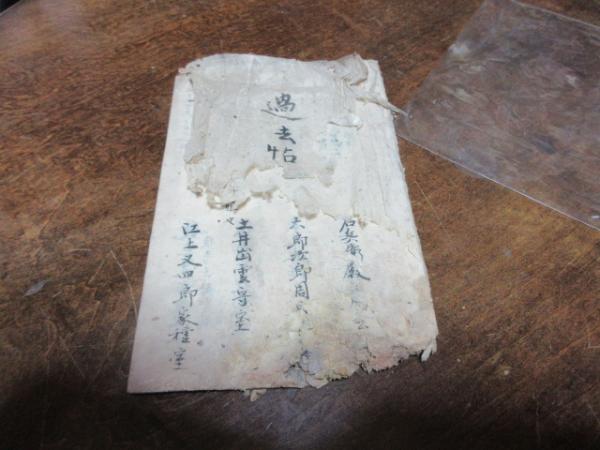 過去帖
右兵衛
太郎次郎周
土井出雲守室
江上又四郎家種室